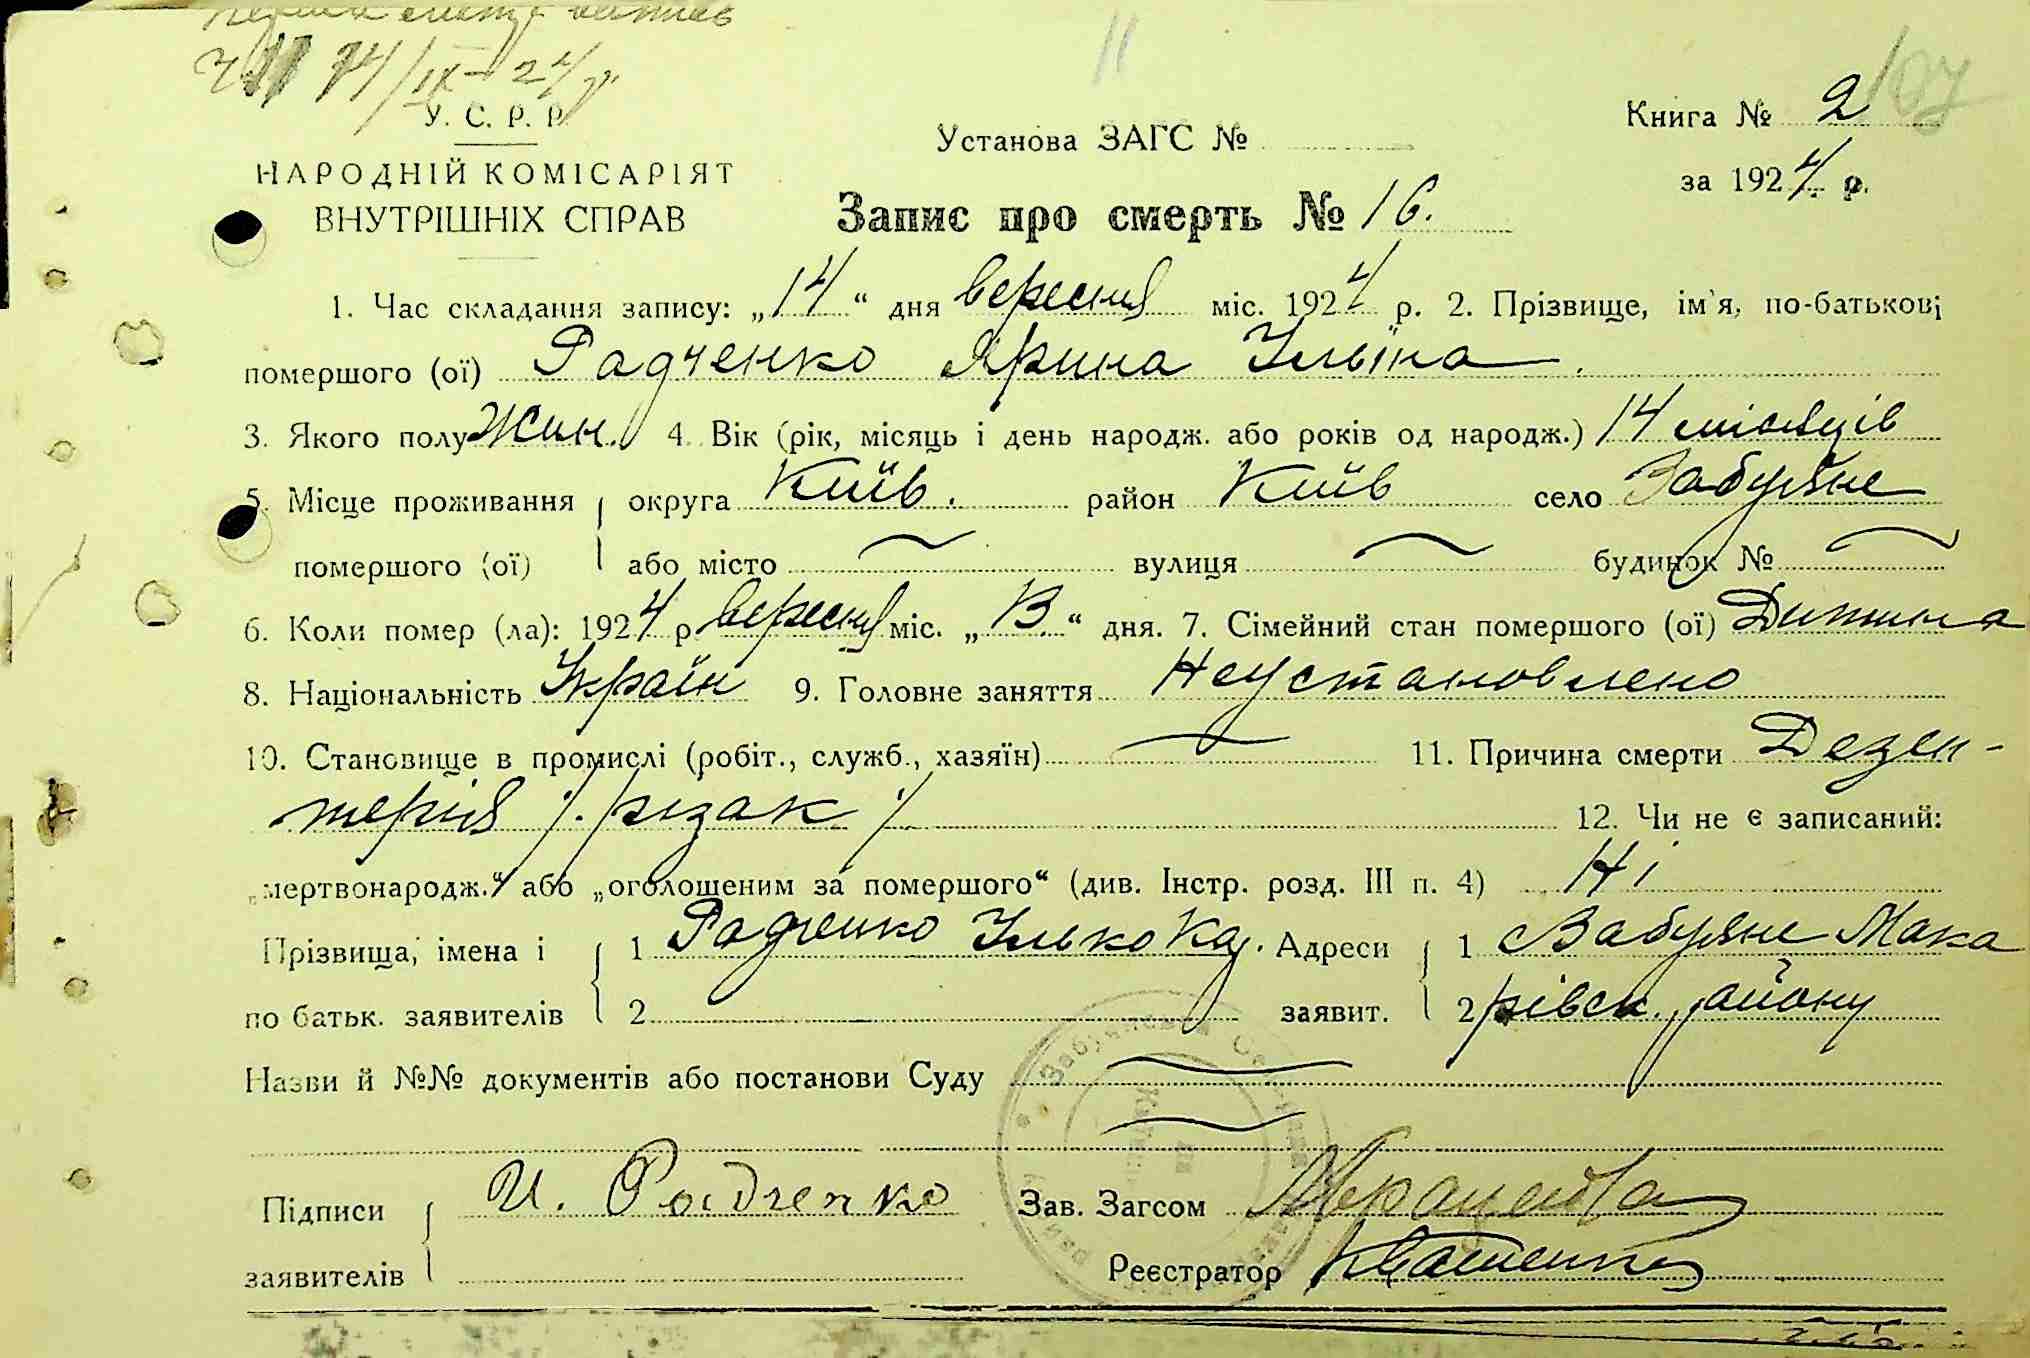 У. С. Р. Р.
НАРОДНІЙ КОМІСАРІЯТ
ВНУТРІШНІХ СПРАВ
Установа ЗАГС №
Книга № 2
за 1924 р.
107
Запис про смерть № 16.
1. Час складання запису: „14“ дня вересня міс. 1924 р. 2. Прізвище, ім'я, по-батькові
помершого (ої) Радченко Ярина Ількіна
3. Якого полу Жин. 4. Вік (рік, місяць і день народж. або років од народж.) 14 місяців
5. Місце проживання округа Київ. район Київ село Забуяне
помершого (ої) або місто вулиця будинок №
6. Коли помер (ла): 1924 р вересня міс. „13“ дня. 7. Сімейний стан помершого (ої) Дитина
8. Національність Україн 9. Головне заняття Неустановлено
10. Становище в промислі (робіт., служб., хазяїн) 11. Причина смерти Дезен-
терія /. різак ./ 12. Чи не є записаний:
„мертвонародж.“ або „оголошеним за помершого“ (див. Інстр. розд. III п. 4) Ні
Прізвища, імена і 1 Радченко Ілько Адреси 1 Забуяне Мака
по батьк. заявителів 2 заявит. 2 рівськ. району
Назви й №№ документів або постанови Суду
Підписи И. Радченко Зав. Загсом
заявителів Реєстратор Квашенко